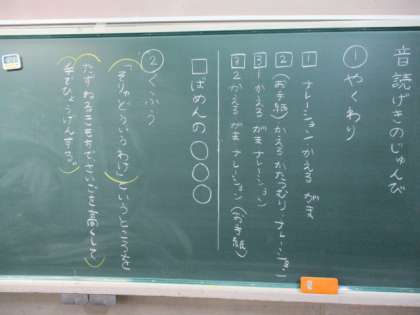 音読げきのじゅんび
①やくわり
1 ナレーション かえる がま
2 (お手紙) かえる かたつむり ナレーション
3-1 かえる がま ナレーション
3-2 かえる がま ナレーション (お手紙)
□ばめんの○○○
②くふう
「そりゃどういうわけ」というところを
たずねるきもちで、さいごを高くして
(手ぴょうげんする。)